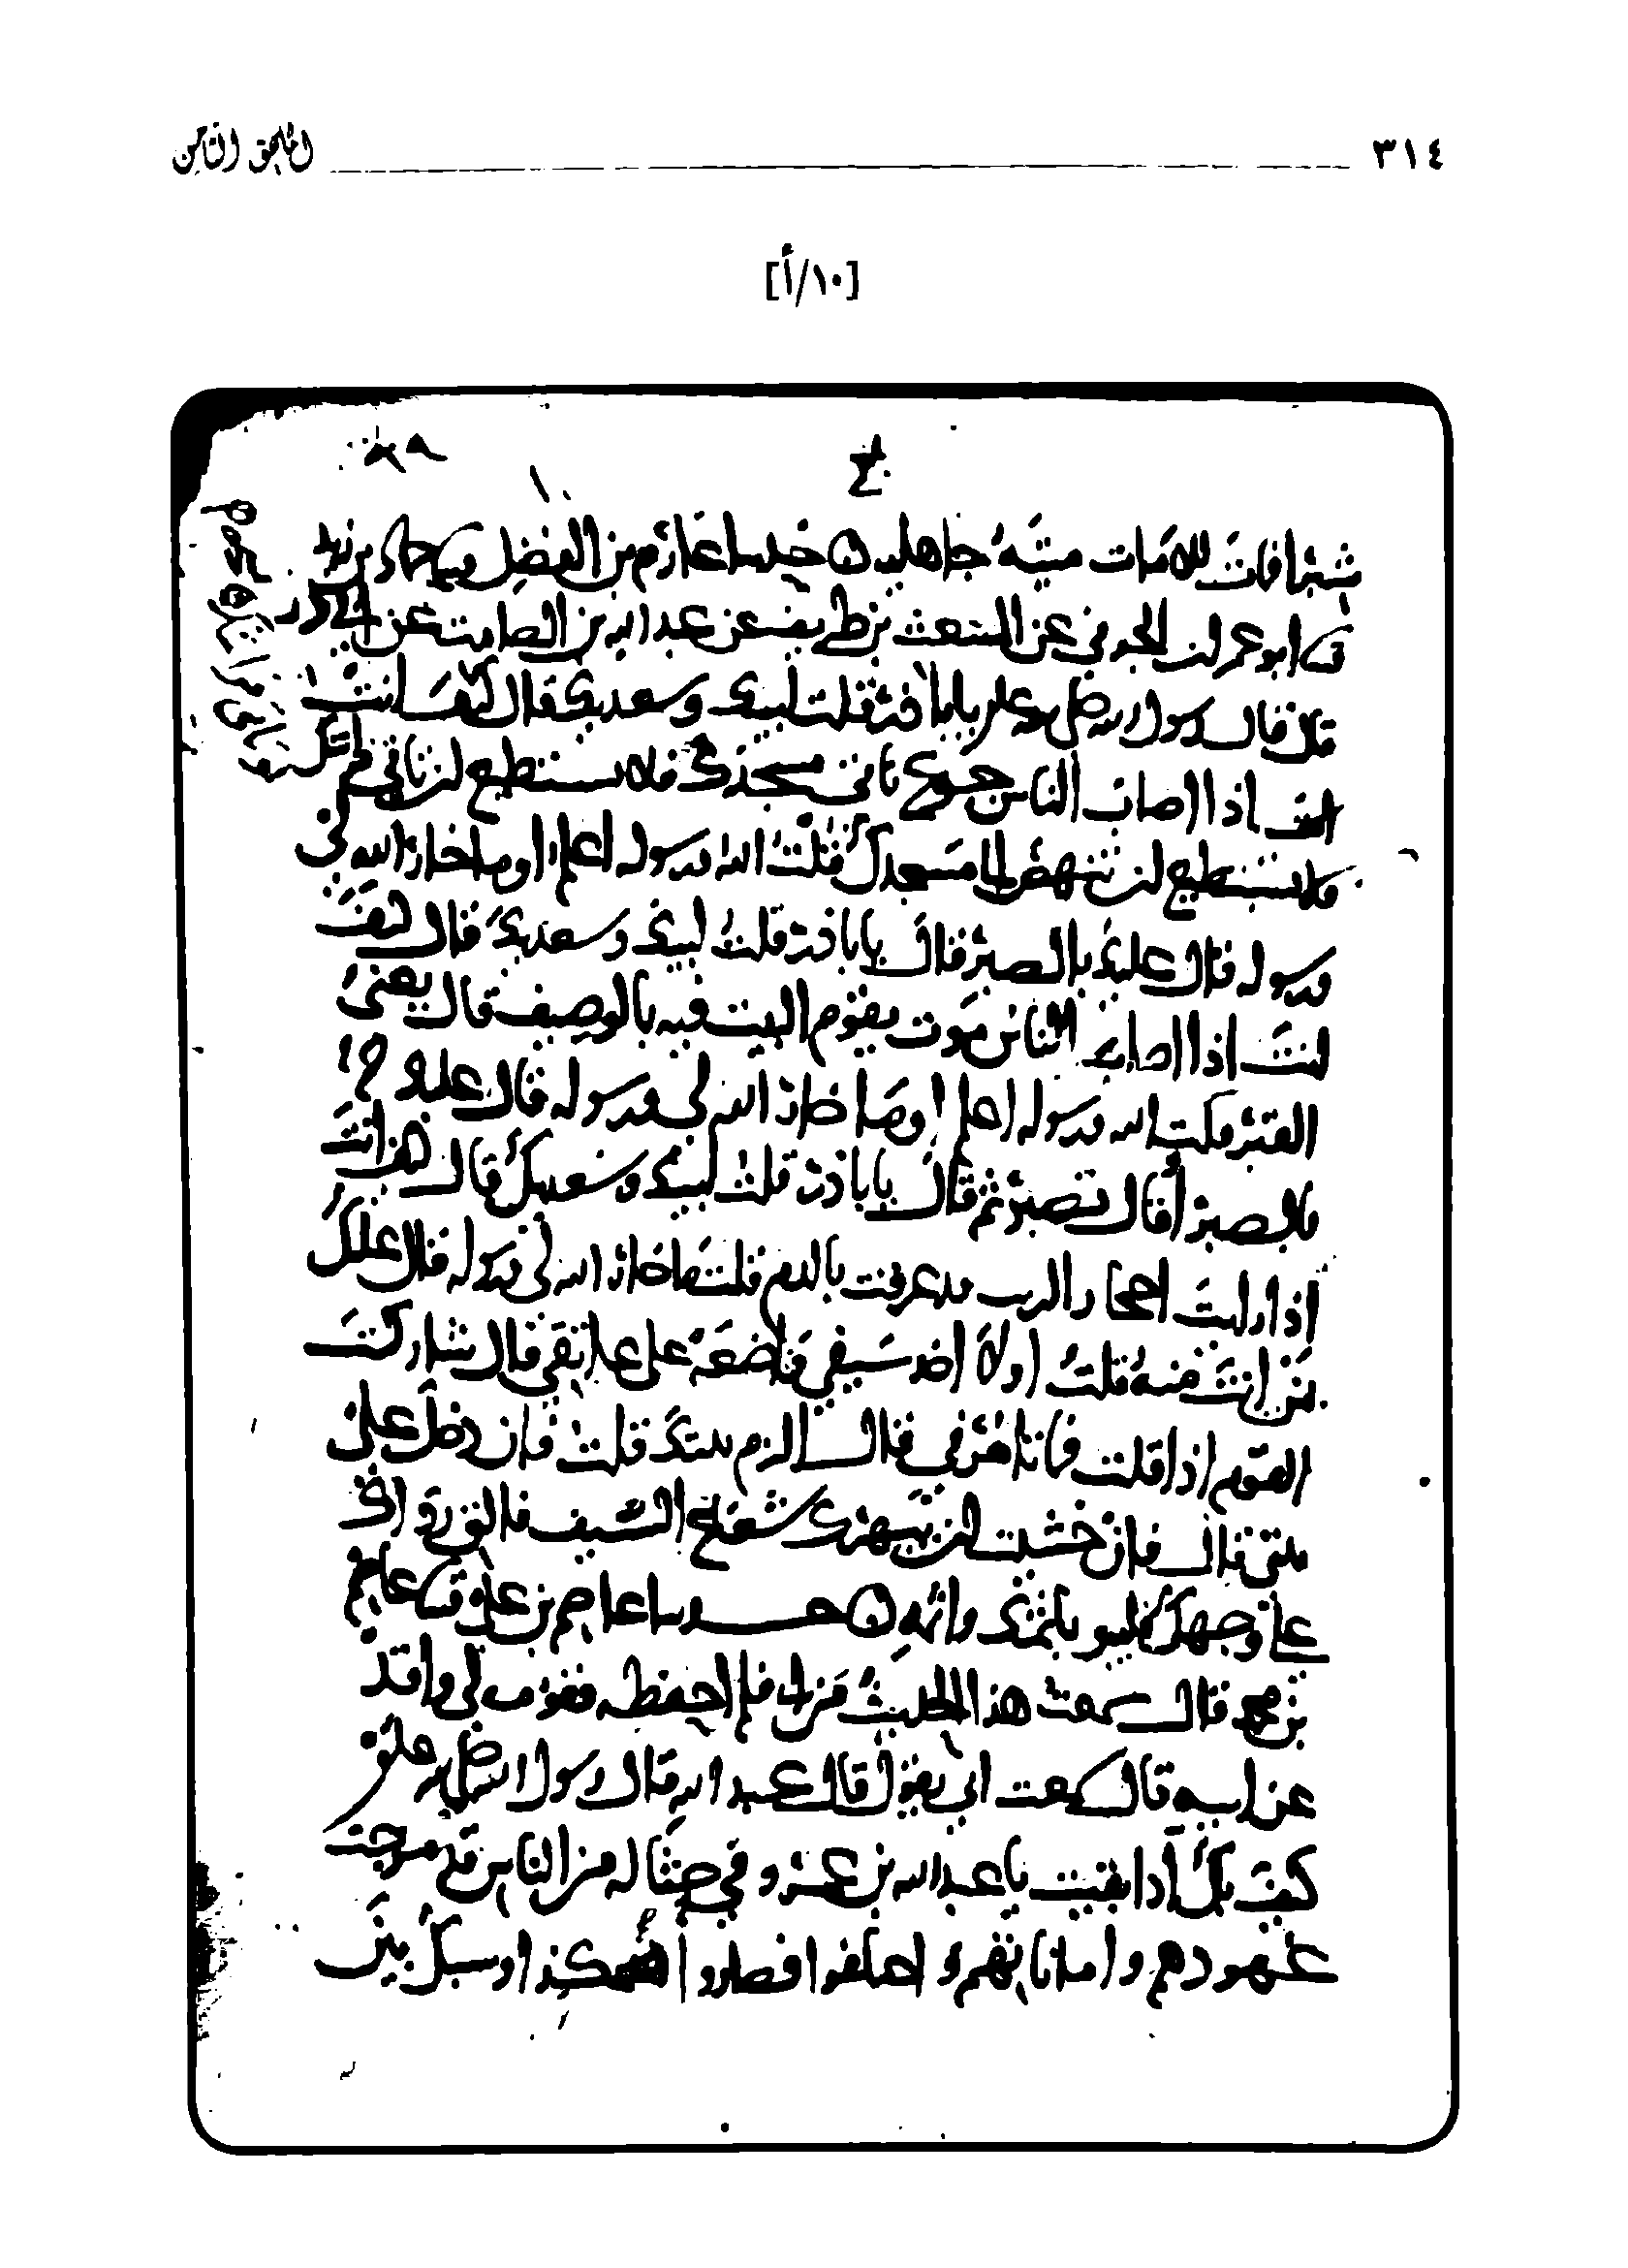 ٣١٤ الملحق الثامن
[١٠/أ]
شبرا فمات الا مات ميتة جاهلية حدثنا عارم بن الفضل وثنا حماد بن زيد
ثنا ابو عمران الجوني عن المشعث بن طريف عن عبد الله بن الصامت عن ابي ذر
قال قال رسول الله صلى الله عليه يابا ذر قلت لبيك وسعديك قال كيف انت
اذا اصاب الناس جوع تاتي مسجدك فلا تستطيع ان تاتي
فلا تستطيع ان تنهض الى مسجدك قلت الله ورسوله اعلم او ما خار الله لي
ورسوله قال عليك بالصبر فقال يابا ذر قلت لبيك وسعديك قال كيف
انت اذا اصاب الناس موت يقوم البيت فيه بالوصيف قال يعني
القبر قلت الله ورسوله اعلم او ما خار الله لي ورسوله قال عليك
بالصبر او قال تصبر ثم قال يابا ذر قلت لبيك وسعديك قال كيف انت
اذا رايت احجار الزيت قد غرقت بالدم قلت ما خار الله لي ورسوله قال عليك
بمن انت منه قلت اولا اخذ سيفي فاضعه على عاتقي قال شاركت
القوم اذا قلت فما تامرني قال الزم بيتك قلت فان دخل علي
بيتي قال فان خشيت ان يبهرك شعاع السيف فالق رداك
على وجهك يبو باثمك واثمه حدثنا عاصم بن علي ثنا عاصم
بن محمد قال سمعت هذا الحديث من ابي فلم احفظه فقومه لي واقد
عن ابيه قال سمعت ابي يقول قال عبد الله قال رسول الله صلى الله عليه
كيف بك اذا بقيت يا عبد الله بن عمر وفي حثالة من الناس قد مرجت
عهودهم واماناتهم و اختلفوا فصاروا هكذا وشبك بين